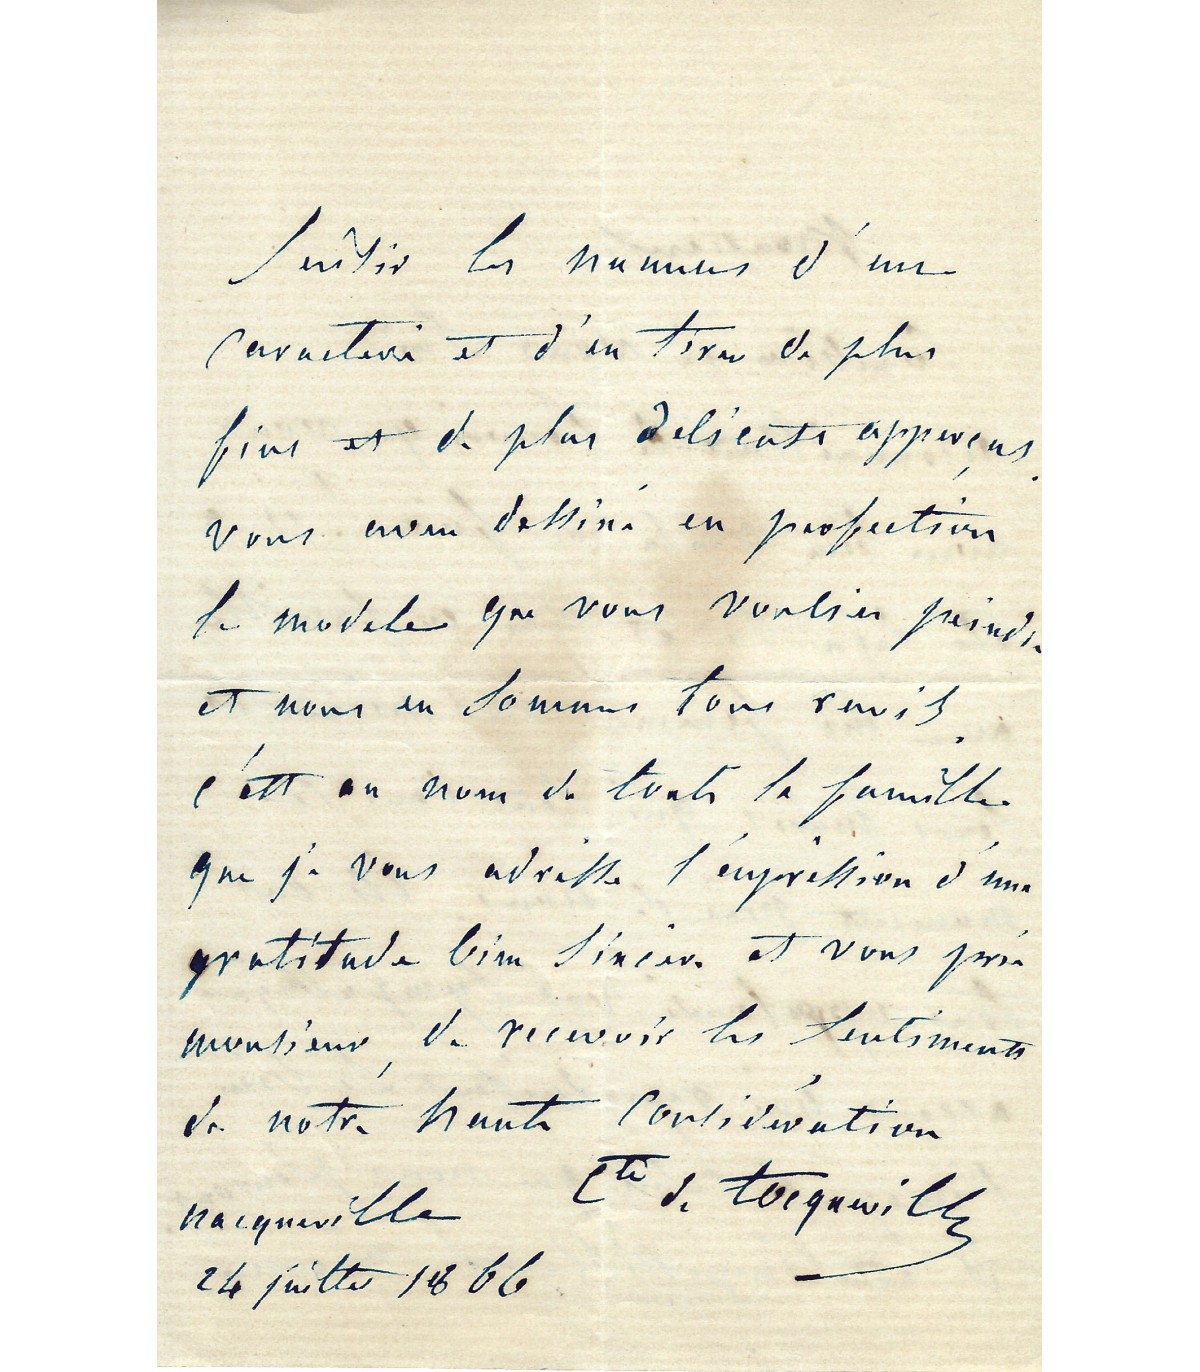 sentir les nuances d'un
caractère et d'en tirer de plus
fins et de plus délicats apperçus.
vous avez dessiné en perfection
le modele que vous vouliez peindre
et nous en sommes tous ravis.
c'est au nom de toute la famille
que je vous adresse l'expression d'une
gratitude bien sincère et vous prie
monsieur, de recevoir les sentiments
de notre haute considération
Cte de tocqueville
nacqueville
24 juillet 1866